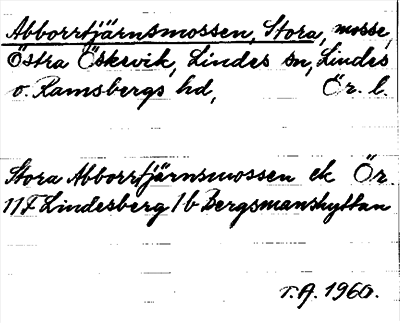 Abborrtjärnsmossen, Stora, mosse,
Östra Öskevik, Lindes sn, Lindes
o. Ramsbergs hd, Ör. l.
Stora Abborrtjärnsmossen ek Ör.
11F Lindesberg 1b Bergsmanshyttan
r.A. 1960.